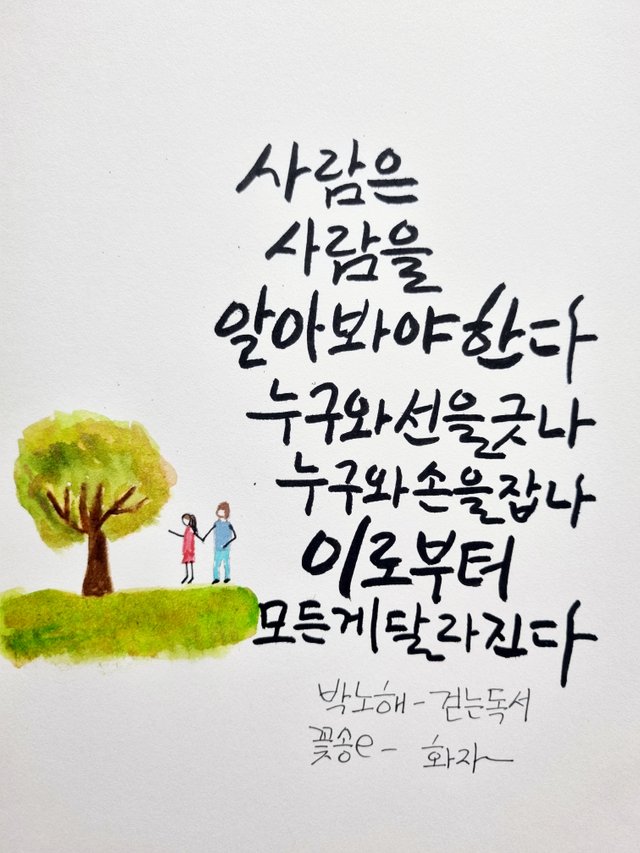 사람은
사람을
알아봐야한다
누구와선을긋나
누구와손을잡나
이로부터
모든게달라진다
박노해-걷는독서
꽃송e- 화자